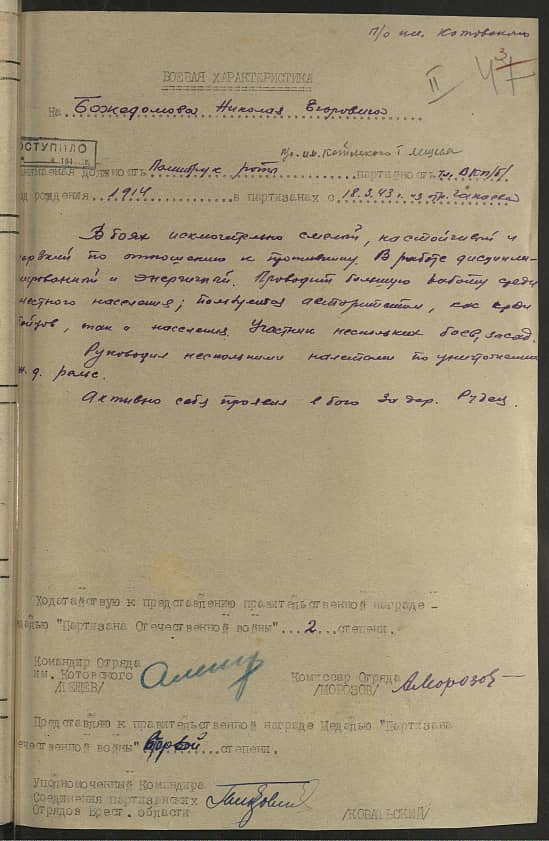 П/О им. Котовского
II 3 47
БОЕВАЯ ХАРАКТЕРИСТИКА
На Божедомова Николая Егоровича
ПОСТУПИЛО
п/о-им. Котовского
занимаемая должность Политрук роты партийность чл. ВКП/б/
год рождения 1914 в партизанах с 18.3.43 г. из отр. Чапаева
В боях исключительно смелый, настойчивый и
по отношению к противнику. В работе дисципли-
нированной и энергичный. Проводит большую работу среди
местного населения; пользуется авторитетом, как среди
бойцов, так и населения. Участник нескольких боев, засад.
Руководил несколькими налетами по уничтожению
ж.д. рельс.
Активно себя проявил в бою за дер. Рудец.
Ходатайствую к представлению правительственной награде -
Медалью "Партизана Отечественной войны"...2...степени.
Командир Отряда
им. Котовского
Комиссар Отряда
/МОРОЗОВ/ АМорозов
Представляю к правительственной награде Медалью "Партизана
Отечественной войны" Второй степени.
Уполномоченный Командира
Соединения партизанских
Отрядов Брест. области